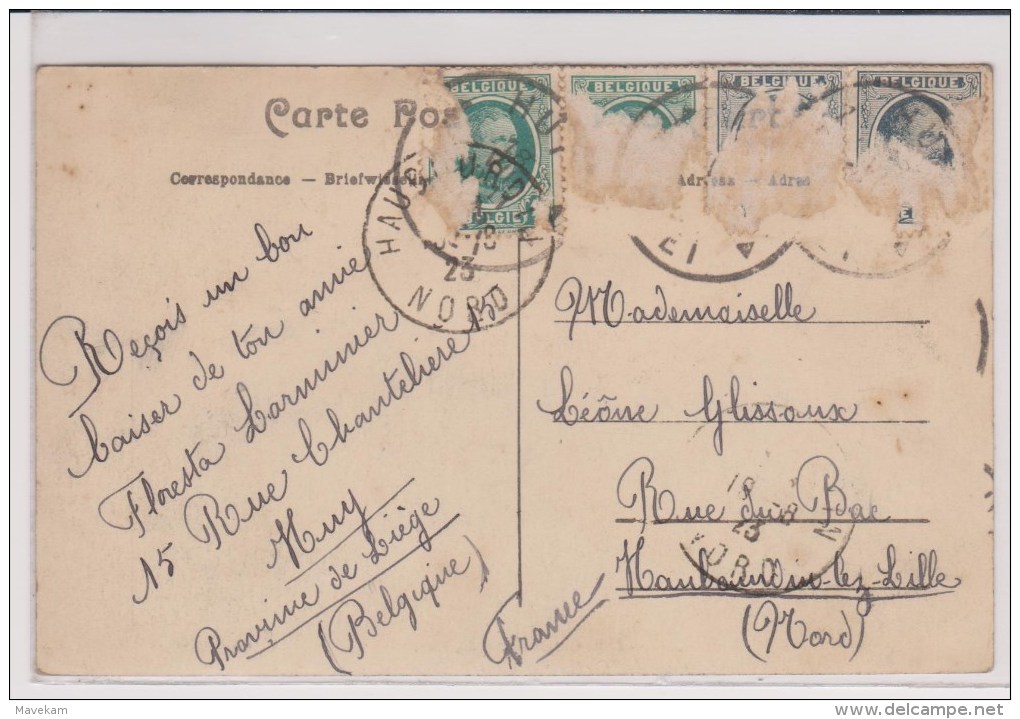 Carte Pos
Correspondance – Briefwisselung
Adresse – Adres
BELGIQUE
BELGIQUE
BELGIQUE
BELGIQUE
BELGIE
HUY
HAUBOURDIN
18
23
NORD
Reçois un bon
baiser de ton amie
Floresta Larminier
15 Rue Chantelière 150
Huy
Province de Liège
(Belgique)
Mademoiselle
Léône Glissoux
Rue du Bac
Haubourdin-lez-Lille
(Nord)
France
18
23
NORD
Mavekam
delcampe.net